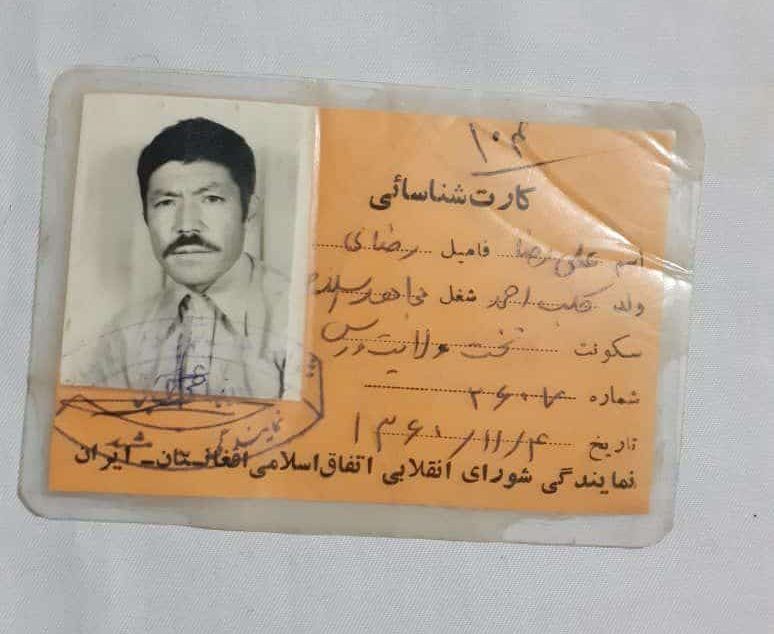 ۱۰۴
کارت شناسائی
اسم علی رضا فامیل رضائی
ولد کلب احمد شغل مجاهد
سکونت تخت ولایت ورس
شماره
تاریخ ۱۳۶۰/۱۱/۴
نمایندگی شورای انقلابی اتفاق اسلامی افغانستان - ایران
نمایندگی مشهد